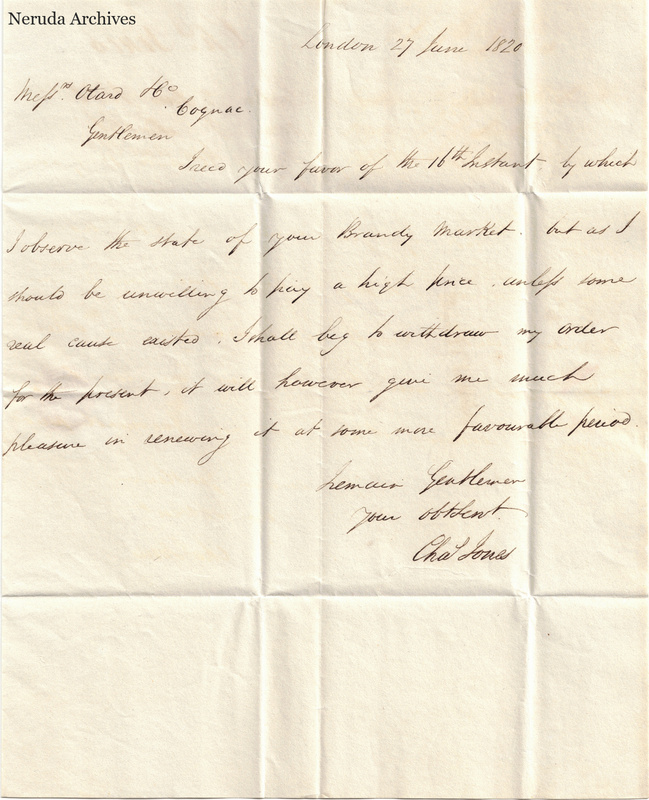 Neruda Archives
London 27 June 1820
Messrs. Otard & Co
Cognac.
Gentlemen
I recd your favor of the 16th Instant by which
I observe the state of your Brandy Market. but as I
should be unwilling to pay a high price. unless some
real cause existed. I shall beg to withdraw my order
for the present, it will however give me much
pleasure in renewing it at some more favourable period.
I remain Gentlemen
your obt Servt.
Chas Jones